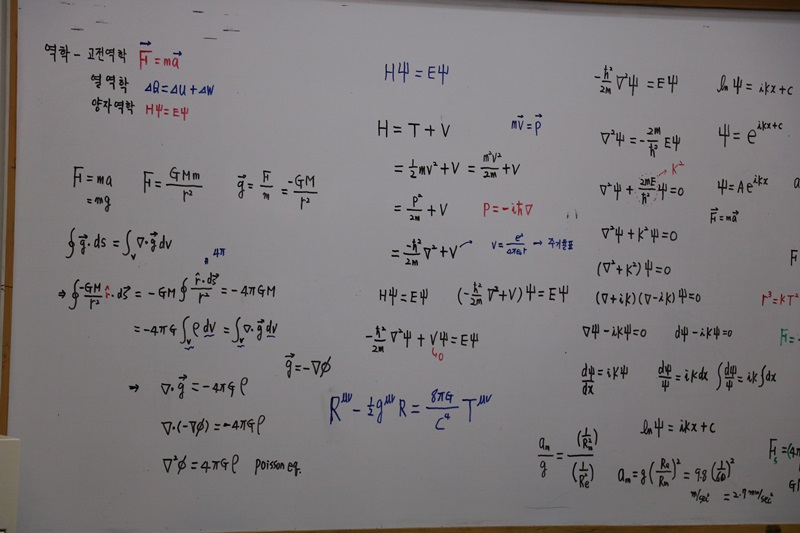 역학 - 고전역학 F⃗ = ma⃗
열역학 ΔQ = ΔU + ΔW
양자역학 HΨ = EΨ
F = ma
= mg
F = GMm/r²
g⃗ = F/m = -GM/r²
∮g⃗·ds = ∫ᵥ∇·g⃗dv
4π
⇒ ∮-GM/r² r̂·ds⃗ = -GM∮r̂·ds⃗/r² = -4πGM
= -4πG∫ᵥρdv = ∫ᵥ∇·g⃗dv
g⃗ = -∇φ
⇒ ∇·g⃗ = -4πGρ
∇·(-∇φ) = -4πGρ
∇²φ = 4πGρ poisson eq.
HΨ = EΨ
H = T + V
mv⃗ = p⃗
= ½mv² + V = m²v²/2m + V
= p²/2m + V
P = -iħ∇
= -ħ²/2m ∇² + V
V = e²/4πε₀r → 주기율표
HΨ = EΨ (-ħ²/2m ∇² + V)Ψ = EΨ
-ħ²/2m ∇²Ψ + VΨ = EΨ
↳0
R^μν - ½g^μν R = 8πG/c⁴ T^μν
-ħ²/2m ∇²Ψ = EΨ
∇²Ψ = -2m/ħ² EΨ
K²
∇²Ψ + 2mE/ħ² Ψ = 0
∇²Ψ + K²Ψ = 0
(∇² + K²)Ψ = 0
(∇ + ik)(∇ - ik)Ψ = 0
∇Ψ - ikΨ = 0 dΨ - ikΨ = 0
dΨ/dx = ikΨ dΨ/Ψ = ikdx ∫dΨ/Ψ = ik∫dx
lnΨ = ikx + c
aₘ/g = (1/Rₘ²)/(1/Rₑ²)
aₘ = g(Rₑ/Rₘ)² = 9.8(1/60)²
m/sec² = 2.7mm/sec²
lnΨ = ikx + c
Ψ = e^(ikx+c)
Ψ = Ae^(ikx)
F⃗ = ma⃗
r³ = kT²